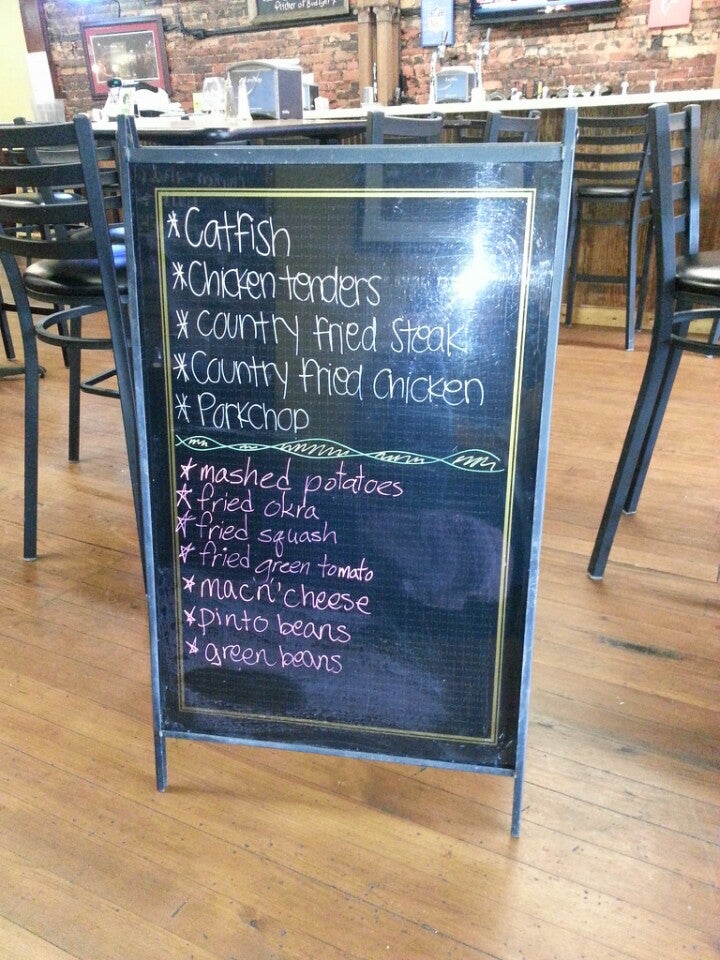 *Catfish
*Chicken tenders
*Country fried Steak
*Country fried Chicken
*Porkchop
*mashed potatoes
*fried okra
*fried squash
*fried green tomato
*mac n' cheese
*pinto beans
*green beans
NFL